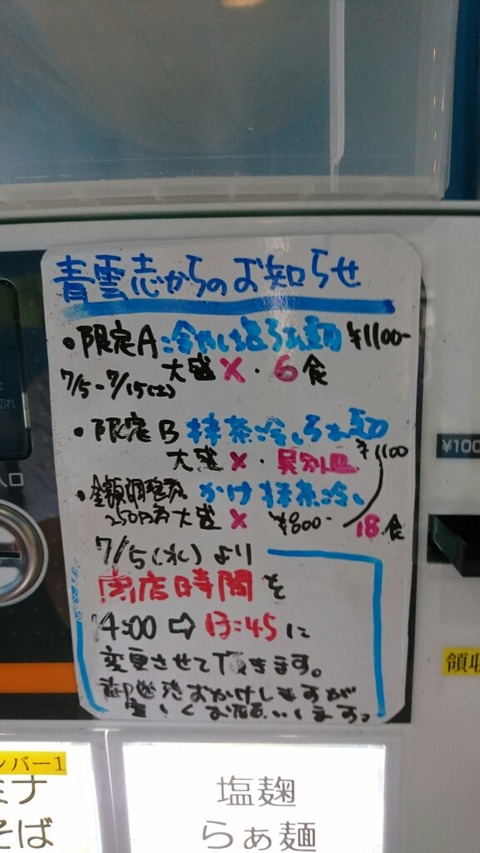 青雲志からのお知らせ
•限定A 冷やし塩らぁ麺 ¥1100-
7/5-7/15(土) 大盛 ×・6食
•限定B 抹茶冷しらぁ麺
大盛 ×・具別皿 ¥1100
•金額調整券 かけ抹茶冷し
250円券 大盛 × ¥800- 18食
7/5(水)より
閉店時間を
14:00⇨13:45に
変更させて頂きます。
御迷惑おかけしますが
宜しくお願いします。
入口
¥100
領収
ンバー1
ミナ
そば
塩麹
らぁ麺